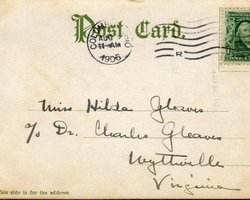 Post Card.
AUG
11-AM
1906
R
Miss Hilda Gloves
c/o Dr. Charles Gleaves
Wytheville
Virginia
This side is for the address.